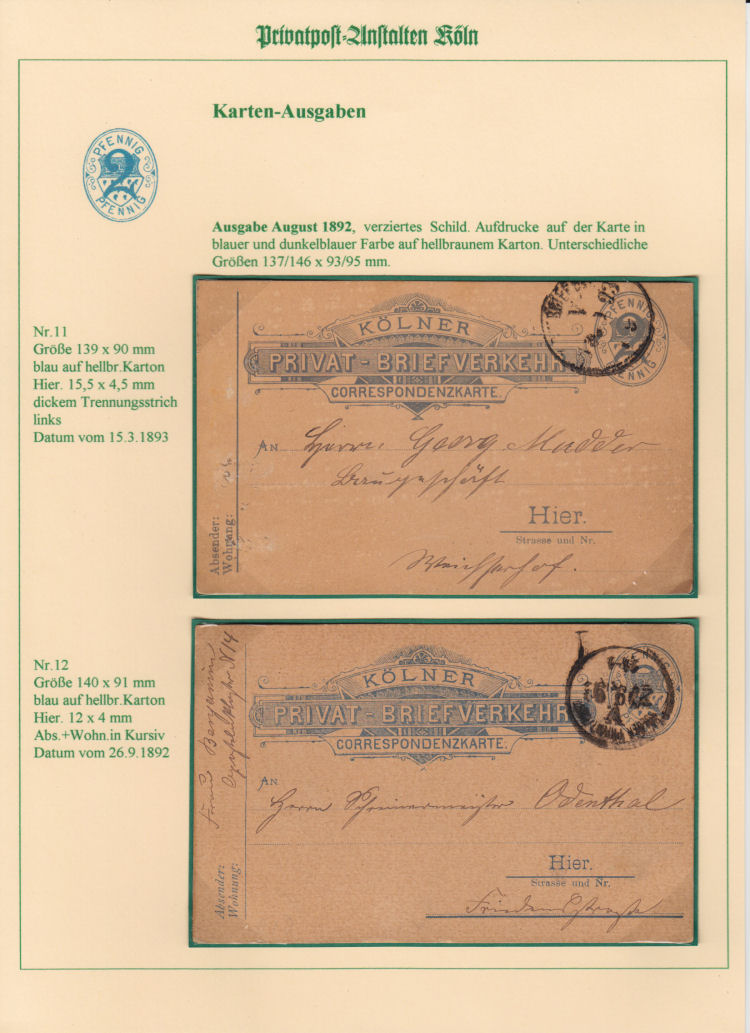 Privatpost-Anstalten Köln
Karten-Ausgaben
PFENNIG
2
PFENNIG
Ausgabe August 1892, verziertes Schild. Aufdrucke auf der Karte in
blauer und dunkelblauer Farbe auf hellbraunem Karton. Unterschiedliche
Größen 137/146 x 93/95 mm.
Nr.11
Größe 139 x 90 mm
blau auf hellbr.Karton
Hier. 15,5 x 4,5 mm
dickem Trennungsstrich
links
Datum vom 15.3.1893
PFENNIG
2
PFENNIG
KÖLNER
PRIVAT-BRIEFVERKEHR
CORRESPONDENZKARTE.
AN Herrn Georg Madder
Baugeschäft
Hier.
Strasse und Nr.
Absender:
Wohnung:
Nr.12
Größe 140 x 91 mm
blau auf hellbr.Karton
Hier. 12 x 4 mm
Abs.+Wohn.in Kursiv
Datum vom 26.9.1892
KÖLNER
PRIVAT-BRIEFVERKEHR
CORRESPONDENZKARTE.
2
AN
Herrn Schreinermeister Odenthal
Hier.
Strasse und Nr.
Friedenstrasse
Absender:
Wohnung:
Benjamin